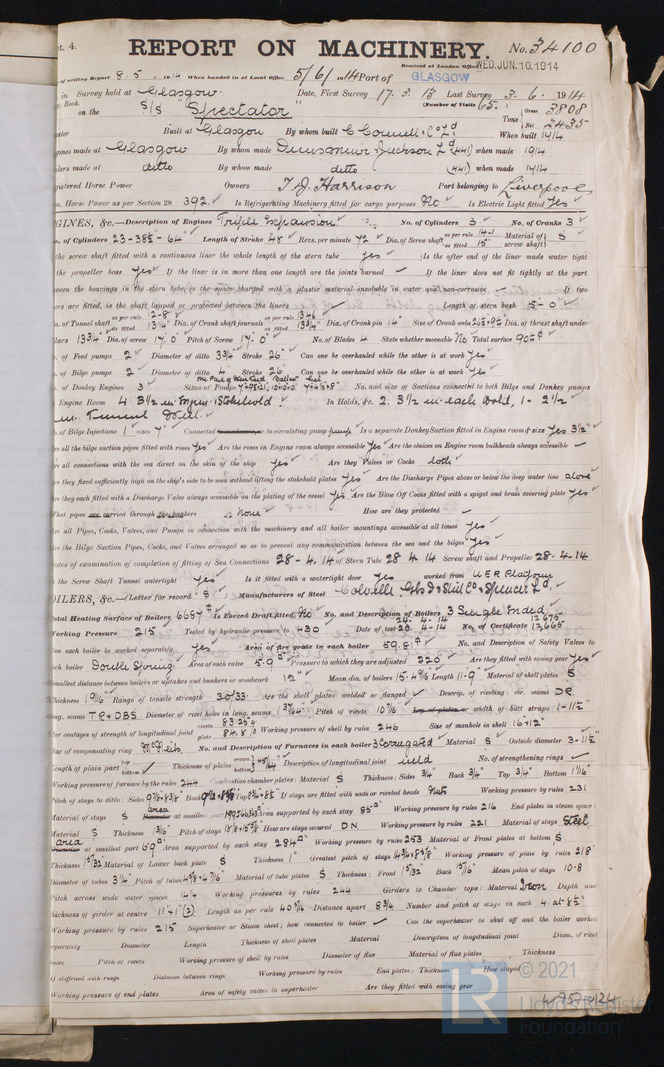 pt. 4.
REPORT ON MACHINERY. No. 34100
Received at London Office WED. JUN. 10. 1914
of writing Report 8. 5. 1914 When handed in at Local Office 5/6/1914 Port of GLASGOW
in Survey held at Glasgow Date, First Survey 17. 3. 13 Last Survey 3. 6. 1914
Book. (Number of Visits 65.)
on the S/S "Spectator" Tons Gross 3808 Net 2435
Built at Glasgow By whom built C Connell & Co Ld When built 1914
gines made at Glasgow By whom made Dunsmuir & Jackson Ld (441) when made 1914
oilers made at ditto By whom made ditto (441) when made 1914
gistered Horse Power Owners T. & J. Harrison Port belonging to Liverpool
m. Horse Power as per Section 28 392. Is Refrigerating Machinery fitted for cargo purposes No Is Electric Light fitted Yes
GINES, &c.—Description of Engines Triple Expansion. No. of Cylinders 3 No. of Cranks 3
a. of Cylinders 23-38½-64" Length of Stroke 48 Revs. per minute 72 Dia. of Screw shaft as per rule 14.1 as fitted 15" Material of screw shaft S
the screw shaft fitted with a continuous liner the whole length of the stern tube yes Is the after end of the liner made water tight
the propeller boss yes If the liner is in more than one length are the joints burned If the liner does not fit tightly at the part
een the bearings in the stern tube, is the space charged with a plastic material insoluble in water and non-corrosive If two
ers are fitted, is the shaft lapped or protected between the liners Length of stern bush 5-0"
a. of Tunnel shaft as per rule 12.8 as fitted 13¼" Dia. of Crank shaft journals as per rule 13.46 as fitted 13¾" Dia. of Crank pin 14" Size of Crank webs Dia. of thrust shaft under
llars 13¾" Dia. of screw 17'.0" Pitch of Screw 17'.0" No. of Blades 4 State whether moveable No Total surface 90
o. of Feed pumps 2 Diameter of ditto 3¾" Stroke 26" Can one be overhauled while the other is at work Yes
o. of Bilge pumps 2 Diameter of ditto 4" Stroke 26" Can one be overhauled while the other is at work Yes
o. of Donkey Engines 3 Sizes of Pumps No. and size of Suctions connected to both Bilge and Donkey pumps
Engine Room 4 3½ in Engine & Stokehold. In Holds, &c. 2. 3½ in each Hold, 1- 2½"
in Tunnel Well.
o. of Bilge Injections 1 sizes 7" Connected to circulating pump pump Is a separate Donkey Suction fitted in Engine room & size Yes 3½"
re all the bilge suction pipes fitted with roses Yes Are the roses in Engine room always accessible Yes Are the sluices on Engine room bulkheads always accessible
re all connections with the sea direct on the skin of the ship yes Are they Valves or Cocks both
re they fixed sufficiently high on the ship's side to be seen without lifting the stokehold plates Yes Are the Discharge Pipes above or below the deep water line above
re they each fitted with a Discharge Valve always accessible on the plating of the vessel Yes Are the Blow Off Cocks fitted with a spigot and brass covering plate Yes
What pipes are carried through the bunkers None How are they protected
re all Pipes, Cocks, Valves, and Pumps in connection with the machinery and all boiler mountings accessible at all times Yes
re the Bilge Suction Pipes, Cocks, and Valves arranged so as to prevent any communication between the sea and the bilges Yes
ates of examination of completion of fitting of Sea Connections 28-4.14 of Stern Tube 28 4 14 Screw shaft and Propeller 28.4.14
s the Screw Shaft Tunnel watertight Yes Is it fitted with a watertight door yes worked from U E R Platform
OILERS, &c.—(Letter for record S) Manufacturers of Steel
otal Heating Surface of Boilers 6687 Is Forced Draft fitted No No. and Description of Boilers 3 Single Ended
Working Pressure 215 Tested by hydraulic pressure to 430 Date of test 24-4-14 28.4-14 No. of Certificate 12675 12665
an each boiler be worked separately Yes Area of fire grate in each boiler 59.81 No. and Description of Safety Valves to
each boiler Double Spring. Area of each valve 5.9 Pressure to which they are adjusted 220 Are they fitted with easing gear Yes
mallest distance between boilers or uptakes and bunkers or woodwork 12" Mean dia. of boilers Length 11-9" Material of shell plates S
Thickness Range of tensile strength 30/33 Are the shell plates welded or flanged Descrip. of riveting: cir. seams DR
ong. seams TR & DBS Diameter of rivet holes in long. seams Pitch of rivets 10⅞ Lap of plates or width of butt straps 1-11½"
er centages of strength of longitudinal joint rivets 83.25 plate 84.8 Working pressure of shell by rules 246 Size of manhole in shell 16"×12"
ize of compensating ring McNeils No. and Description of Furnaces in each boiler 3 Corrugated Material S Outside diameter 3-11½"
ength of plain part top bottom Thickness of plates crown bottom Description of longitudinal joint weld No. of strengthening rings
Working pressure of furnace by the rules 244 Combustion chamber plates: Material S Thickness: Sides ¾" Back ¾" Top ¾" Bottom
Pitch of stays to ditto: Sides Back Top If stays are fitted with nuts or riveted heads Nuts Working pressure by rules 231
Material of stays S area at smallest part Area supported by each stay 85 Working pressure by rules 216 End plates in steam space:
Material S Thickness Pitch of stays How are stays secured DN Working pressure by rules 221 Material of stays Steel
area at smallest part 69 Area supported by each stay 284 Working pressure by rules 253 Material of Front plates at bottom S
Thickness Material of Lower back plate S Thickness 1" Greatest pitch of stays Working pressure of plate by rules 218
Diameter of tubes 3¼ Pitch of tubes Material of tube plates S Thickness: Front Back Mean pitch of stays 10.8
Pitch across wide water spaces 14¼ Working pressures by rules 244 Girders to Chamber tops: Material Iron Depth and
hickness of girder at centre 11"×1"(2) Length as per rule Distance apart 8¾ Number and pitch of stays in each 4. at 8½"
Working pressure by rules 215 Superheater or Steam chest; how connected to boiler Can the superheater be shut off and the boiler worked
eparately Diameter Length Thickness of shell plates Material Description of longitudinal joint Diam. of rivet
Pitch of rivets Working pressure of shell by rules Diameter of flue Material of flue plates Thickness
If stiffened with rings Distance between rings Working pressure by rules End plates: Thickness How stayed
Working pressure of end plates Area of safety valves to superheater Are they fitted with easing gear
LR © 2021
Lloyd's Register
Foundation